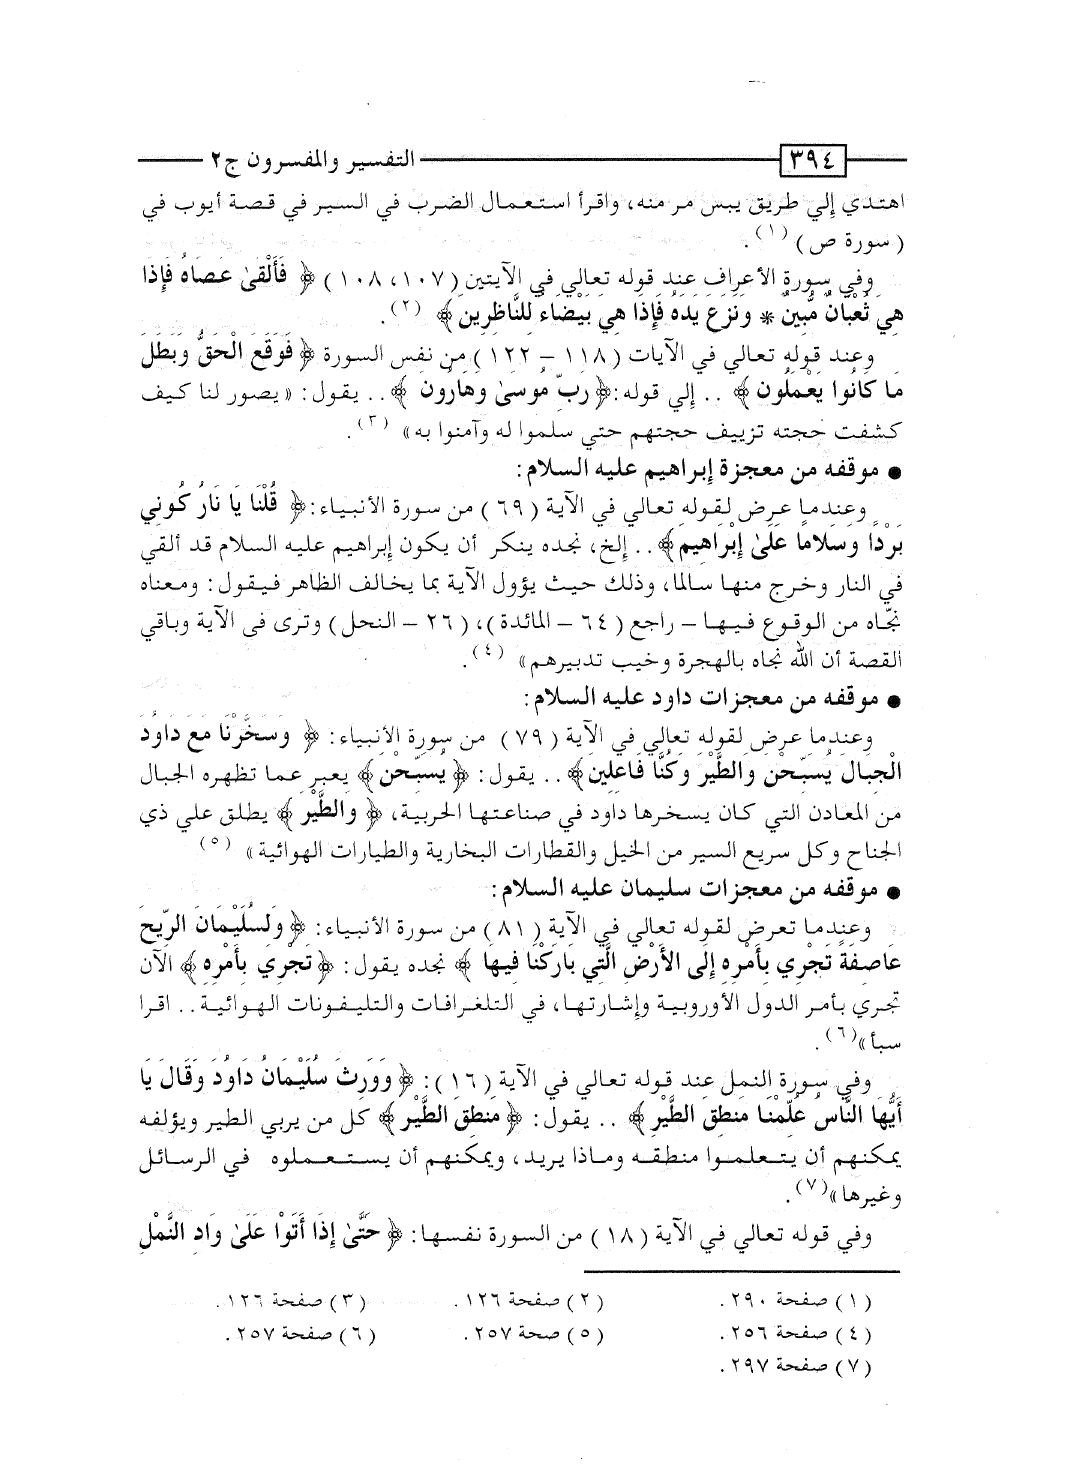 ٣٩٤ التفسير والمفسرون ج٢
اهتدي إلي طريق يبس مر منه، واقرأ استعمال الضرب في السير في قصة أيوب في
( سورة ص ) (١).
وفي سورة الأعراف عند قوله تعالي في الآيتين (١٠٧، ١٠٨) ﴿ فَأَلْقَىٰ عَصَاهُ فَإِذَا
هِيَ ثُعْبَانٌ مُّبِينٌ * وَنَزَعَ يَدَهُ فَإِذَا هِيَ بَيْضَاءُ لِلنَّاظِرِينَ ﴾ (٢).
وعند قوله تعالي في الآيات (١١٨ – ١٢٢) من نفس السورة ﴿ فَوَقَعَ الْحَقُّ وَبَطَلَ
مَا كَانُوا يَعْمَلُونَ ﴾ .. إلي قوله: ﴿ رَبِّ مُوسَىٰ وَهَارُونَ ﴾ .. يقول: «يصور لنا كيف
كشفت حجته تزييف حجتهم حتي سلموا له وآمنوا به» (٣).
● موقفه من معجزة إبراهيم عليه السلام:
وعندما عرض لقوله تعالي في الآية (٦٩) من سورة الأنبياء: ﴿ قُلْنَا يَا نَارُ كُونِي
بَرْدًا وَسَلَامًا عَلَىٰ إِبْرَاهِيمَ ﴾ .. إلخ، نجده ينكر أن يكون إبراهيم عليه السلام قد ألقي
في النار وخرج منها سالما، وذلك حيث يؤول الآية بما يخالف الظاهر فيقول: ومعناه
نجّاه من الوقوع فيها – راجع (٦٤ – المائدة)، (٢٦ – النحل) وترى فى الآية وباقي
القصة أن الله نجاه بالهجرة وخيب تدبيرهم» (٤).
● موقفه من معجزات داود عليه السلام:
وعندما عرض لقوله تعالي في الآية (٧٩) من سورة الأنبياء: ﴿ وَسَخَّرْنَا مَعَ دَاوُدَ
الْجِبَالَ يُسَبِّحْنَ وَالطَّيْرَ وَكُنَّا فَاعِلِينَ ﴾ .. يقول: ﴿ يُسَبِّحْنَ ﴾ يعبر عما تظهره الجبال
من المعادن التي كان يسخرها داود في صناعتها الحربية، ﴿ وَالطَّيْرَ ﴾ يطلق علي ذي
الجناح وكل سريع السير من الخيل والقطارات البخارية والطيارات الهوائية» (٥)
● موقفه من معجزات سليمان عليه السلام:
وعندما تعرض لقوله تعالي في الآية (٨١) من سورة الأنبياء: ﴿ وَلِسُلَيْمَانَ الرِّيحَ
عَاصِفَةً تَجْرِي بِأَمْرِهِ إِلَى الأَرْضِ الَّتِي بَارَكْنَا فِيهَا ﴾ نجده يقول: ﴿ تَجْرِي بِأَمْرِهِ ﴾ الآن
تجري بأمر الدول الأوروبية وإشارتها، في التلغرافات والتليفونات الهوائية .. اقرا
سبأ» (٦).
وفي سورة النمل عند قوله تعالي في الآية (١٦): ﴿ وَوَرِثَ سُلَيْمَانُ دَاوُدَ وَقَالَ يَا
أَيُّهَا النَّاسُ عُلِّمْنَا مَنطِقَ الطَّيْرِ ﴾ .. يقول: ﴿ مَنطِقَ الطَّيْرِ ﴾ كل من يربي الطير ويؤلفه
يمكنهم أن يتعلموا منطقه وماذا يريد، ويمكنهم أن يستعملوه في الرسائل
وغيرها» (٧).
وفي قوله تعالي في الآية (١٨) من السورة نفسها: ﴿ حَتَّىٰ إِذَا أَتَوْا عَلَىٰ وَادِ النَّمْلِ
(١) صفحة ٢٩٠. (٢) صفحة ١٢٦. (٣) صفحة ١٢٦.
(٤) صفحة ٢٥٦. (٥) صحة ٢٥٧. (٦) صفحة ٢٥٧.
(٧) صفحة ٢٩٧.